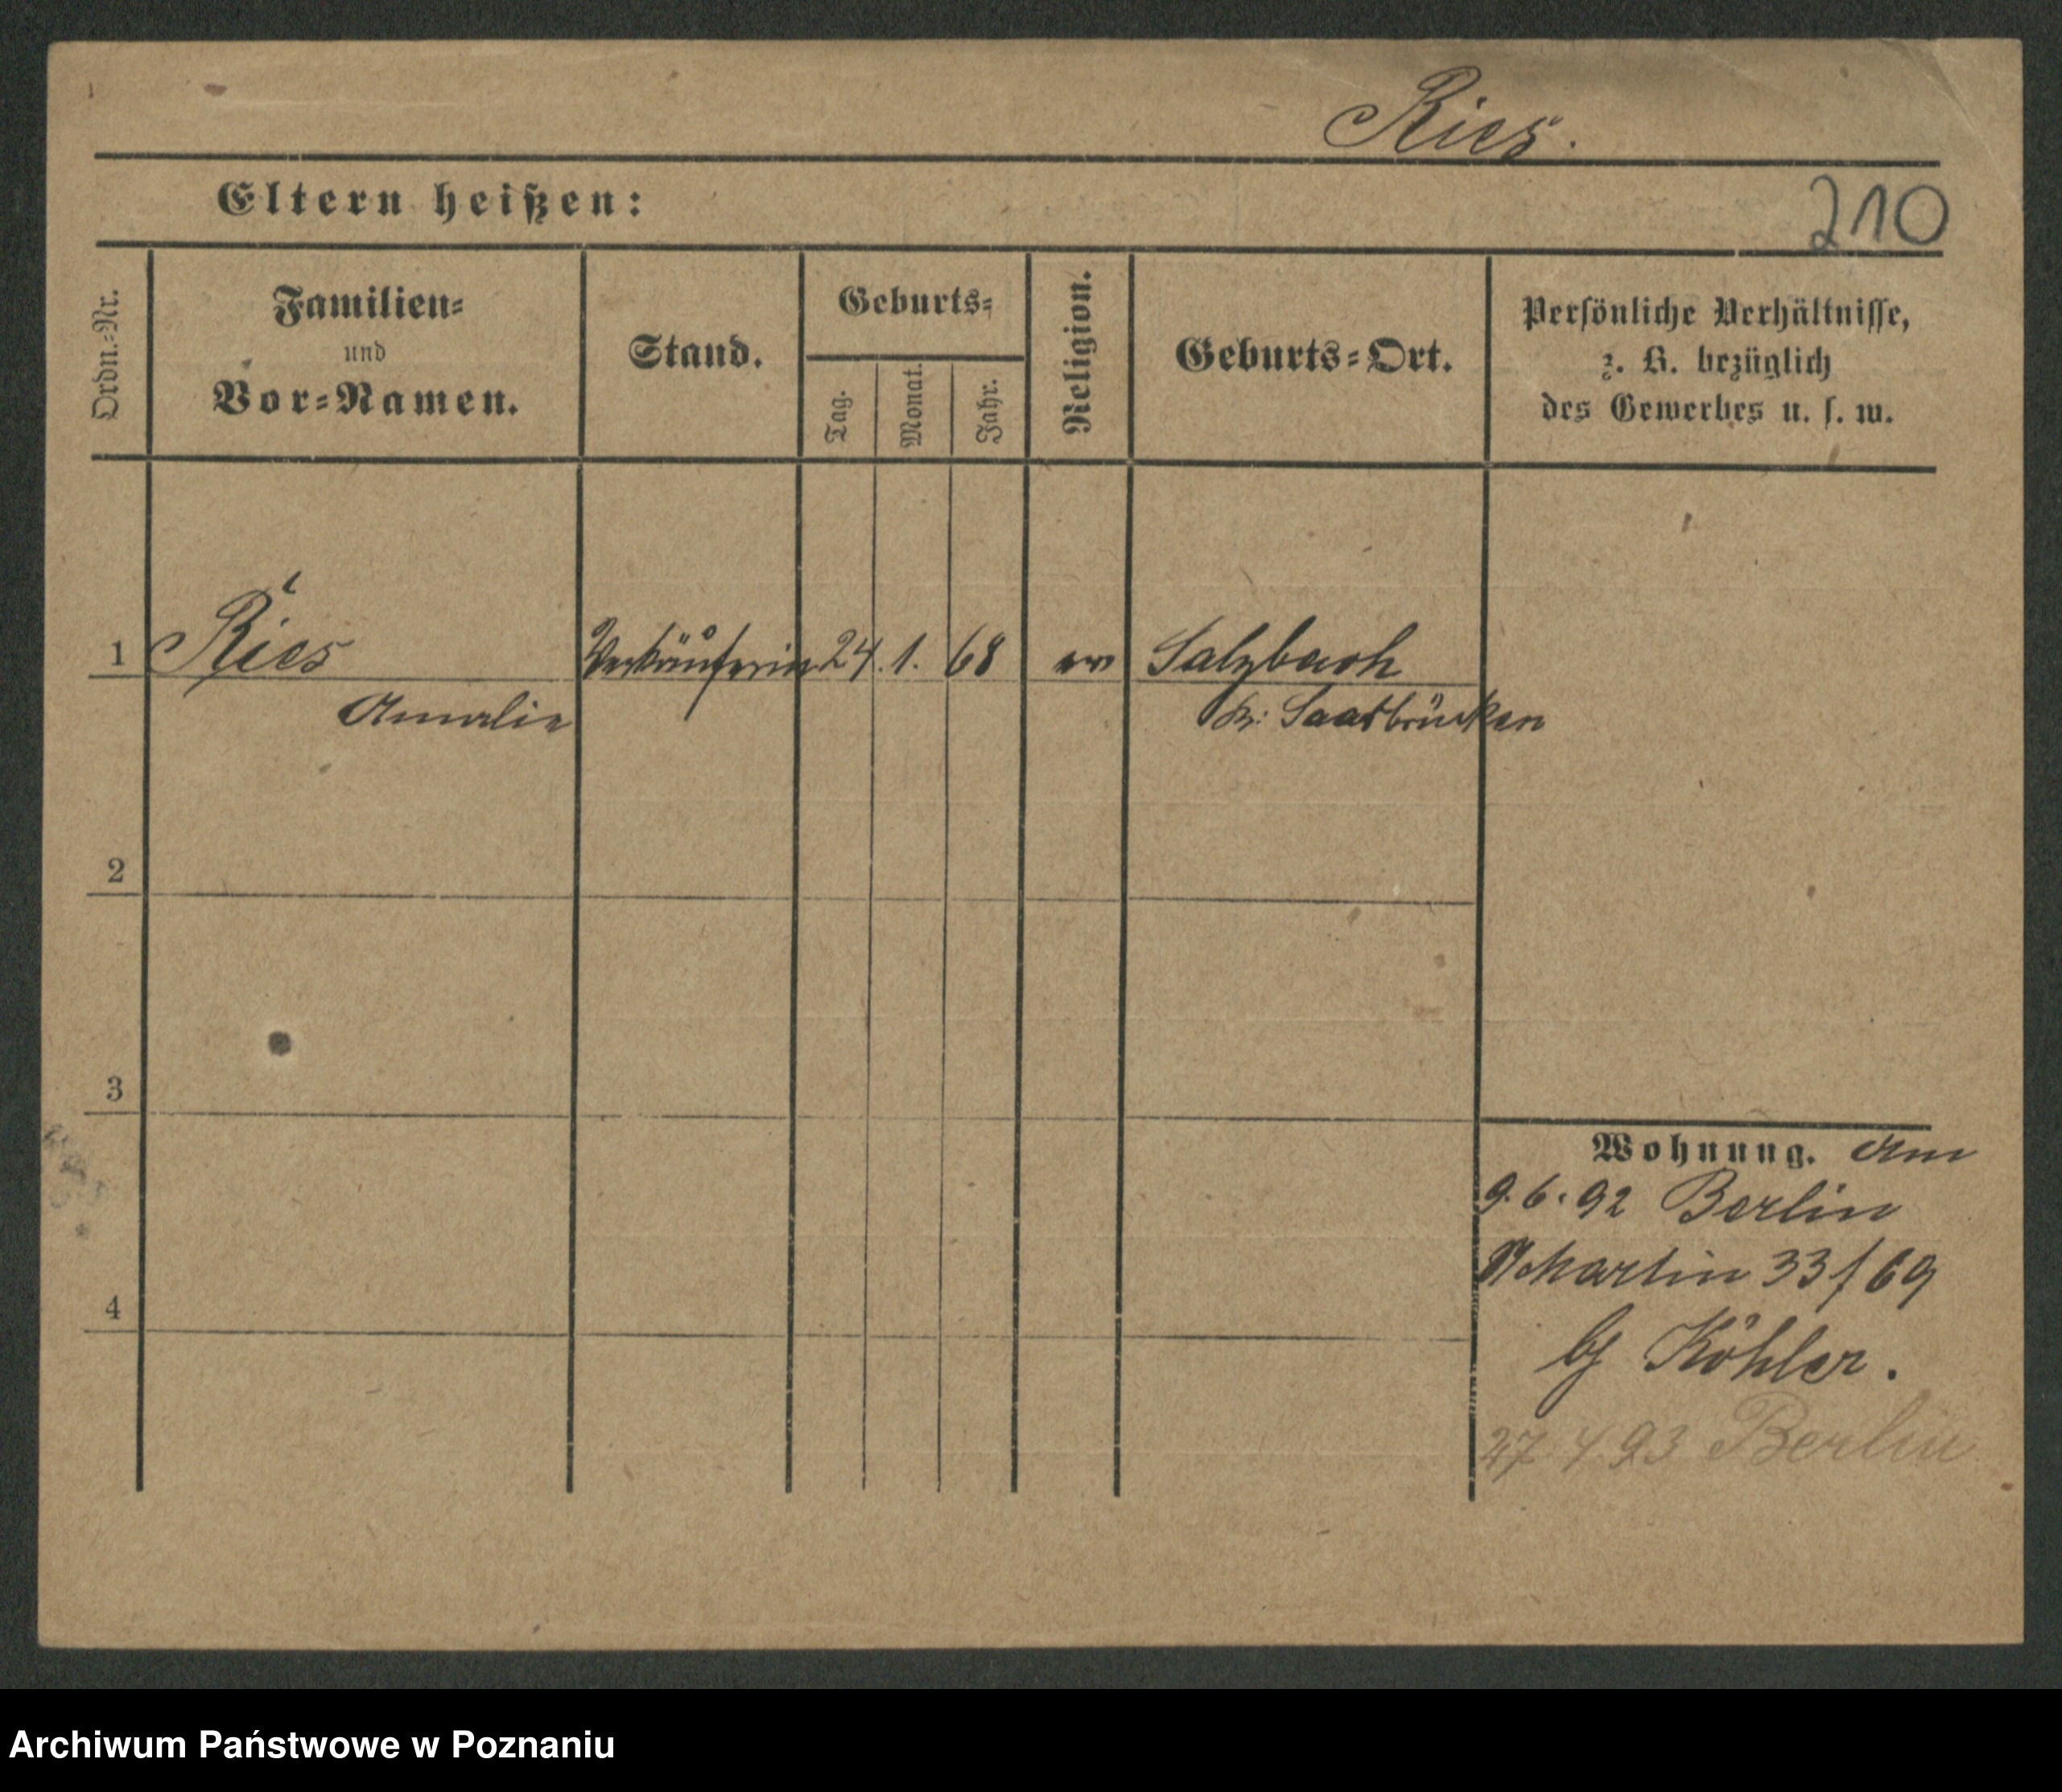 Ries.
Eltern heißen:
210
Ordn.-Nr.
Familien-
und
Vor-Namen.
Stand.
Geburts-
Tag.
Monat.
Jahr.
Religion.
Geburts-Ort.
Persönliche Verhältnisse,
z. B. bezüglich
des Gewerbes u. s. w.
1 Ries Verkäuferin 24. 1. 68 ev Salzbach
Amalie Kr: Saarbrücken
2
3
4
Wohnung. Am
9. 6. 92 Berlin
Martin 33/69
bj Köhler.
27 4. 93 Berlin
Archiwum Państwowe w Poznaniu